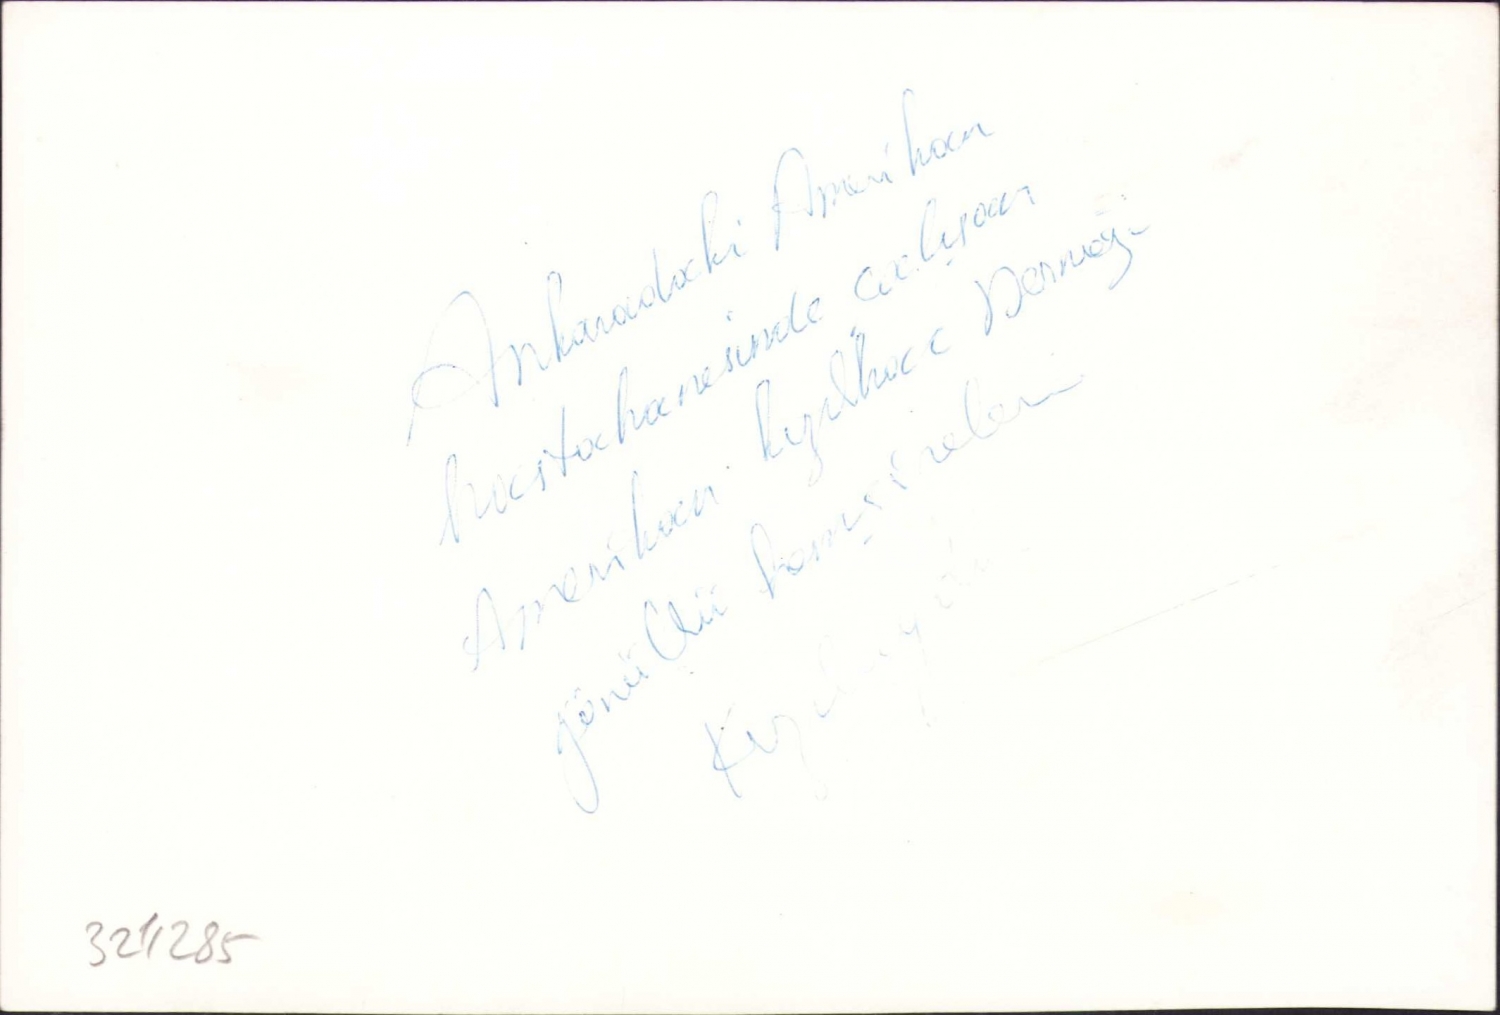 Ankaradaki Amerikan
hastahanesinde çalışan
Amerikan kızılhaç Derneği
gönüllü hemşireleri
321285